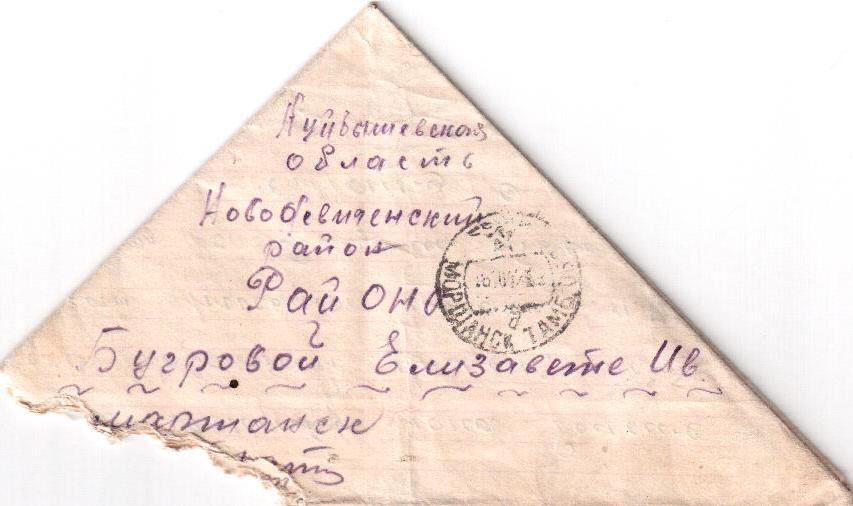 Куйбышевская
область
Новодевиченский
район
Район
Бугровой Елизавете Ив.
МОРШАНСК ТАМБ